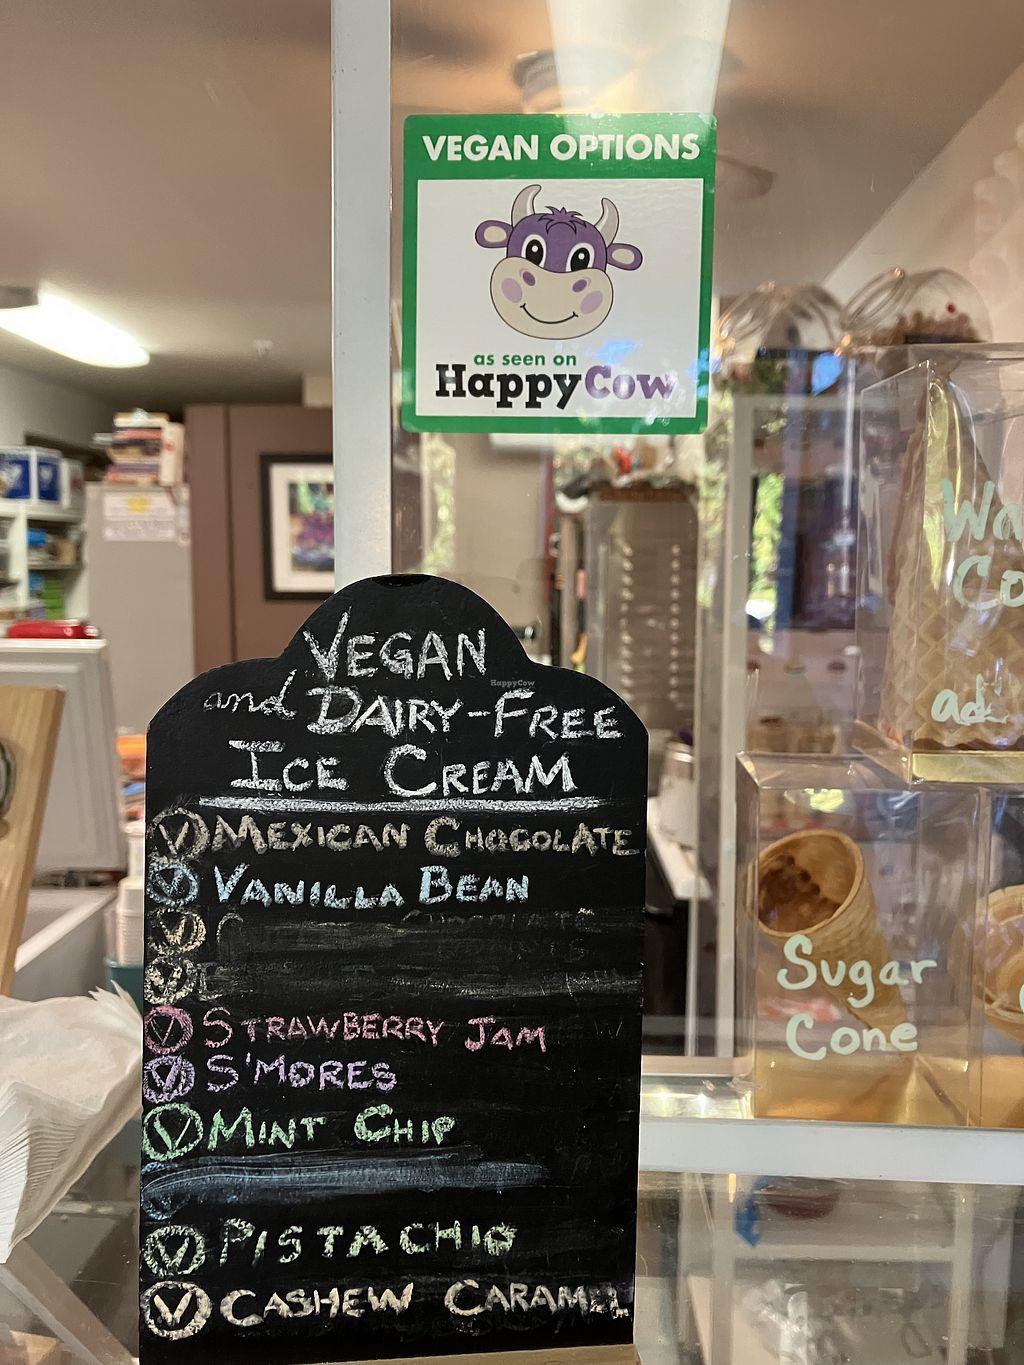 VEGAN OPTIONS
as seen on
HappyCow
VEGAN
and DAIRY-FREE
ICE CREAM
V MEXICAN CHOCOLATE
V VANILLA BEAN
V
V
V STRAWBERRY JAM
V S'MORES
V MINT CHIP
V PISTACHIO
V CASHEW CARAMEL
HappyCow
Sugar
Cone